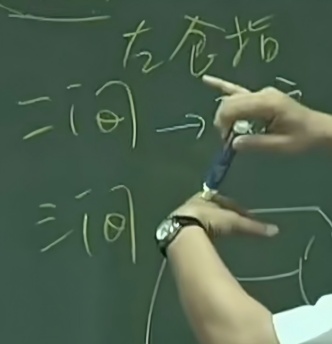 左食指
二间 →
三间